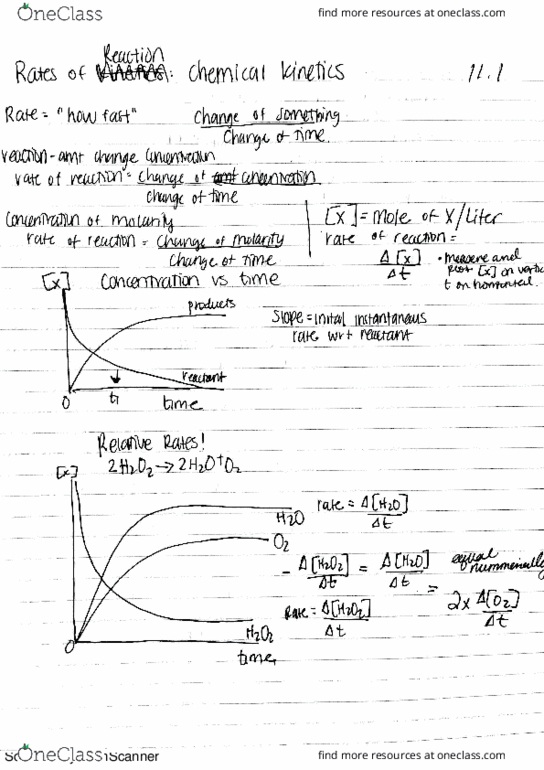 OneClass
find more resources at oneclass.com
Reaction
Rates of : chemical kinetics
11.1
Rate = "how fast"
Change of something
Change of Time.
reaction - amt change concentration
rate of reaction = change of concentration
change of time
Concentration of molarity
rate of reaction = change of molarity
change of time
[X] = mole of X/Liter
rate of reaction =
Δ[X]
Δt
• measure and
plot [X] on vertic
t on horizontal.
[X] Concentration vs time
products
reactant
0 t1 time
Slope = initial instantaneous
rate wrt reactant
Relative Rates!
2H2O2 → 2H2O + O2
[X]
H2O
O2
H2O2
0
time
rate = Δ[H2O]
Δt
- Δ[H2O2] = Δ[H2O]
Δt Δt
equal
nummerically
= 2x Δ[O2]
Δt
Rate = Δ[H2O2]
Δt
OneClass
Scanner
find more resources at oneclass.com